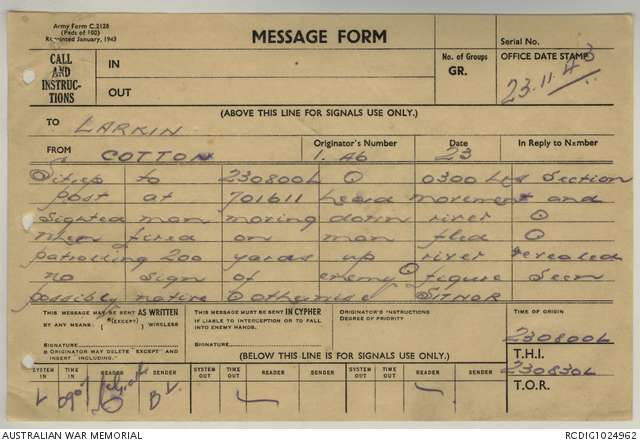 Army Form C.2128
(Pads of 100)
Reprinted January, 1943
MESSAGE FORM
Serial No.
CALL AND INSTRUC-TIONS
IN
OUT
No. of Groups
GR.
OFFICE DATE STAMP
23.11.43
(ABOVE THIS LINE FOR SIGNALS USE ONLY.)
TO LARKIN
FROM COTTON
Originator's Number
I. 46
Date
23
In Reply to Number
Sitrep to 230800L O 0300 hrs Section
post at 701611 heard movement and
sighted man moving down river O
when fired on man fled O
patrolling 200 yards up river revealed
no sign of enemy O figure seen
possibly native O otherwise SITNOR
THIS MESSAGE MAY BE SENT AS WRITTEN
BY ANY MEANS. (EXCEPT) WIRELESS
SIGNATURE
ORIGINATOR MAY DELETE "EXCEPT AND
INSERT INCLUDING."
THIS MESSAGE MUST BE SENT IN CYPHER
IF LIABLE TO INTERCEPTION OR TO FALL
INTO ENEMY HANDS.
SIGNATURE
ORIGINATOR'S INSTRUCTIONS
DEGREE OF PRIORITY
TIME OF ORIGIN
230800L
T.H.I.
230830L
T.O.R.
(BELOW THIS LINE IS FOR SIGNALS USE ONLY.)
SYSTEM IN TIME IN READER SENDER SYSTEM OUT TIME OUT READER SENDER SYSTEM OUT TIME OUT READER SENDER
AUSTRALIAN WAR MEMORIAL
RCDIG1024962